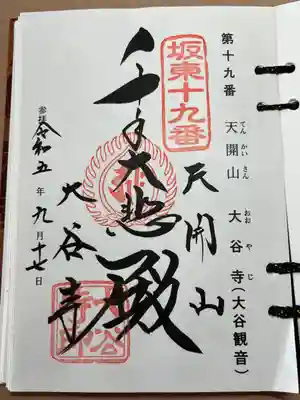 第十九番　天開山　大谷寺(大谷観音)
てんかいさん　おおやじ
坂東十九番
天開山
千手大悲殿
大谷寺
参拝 令和五年九月十七日